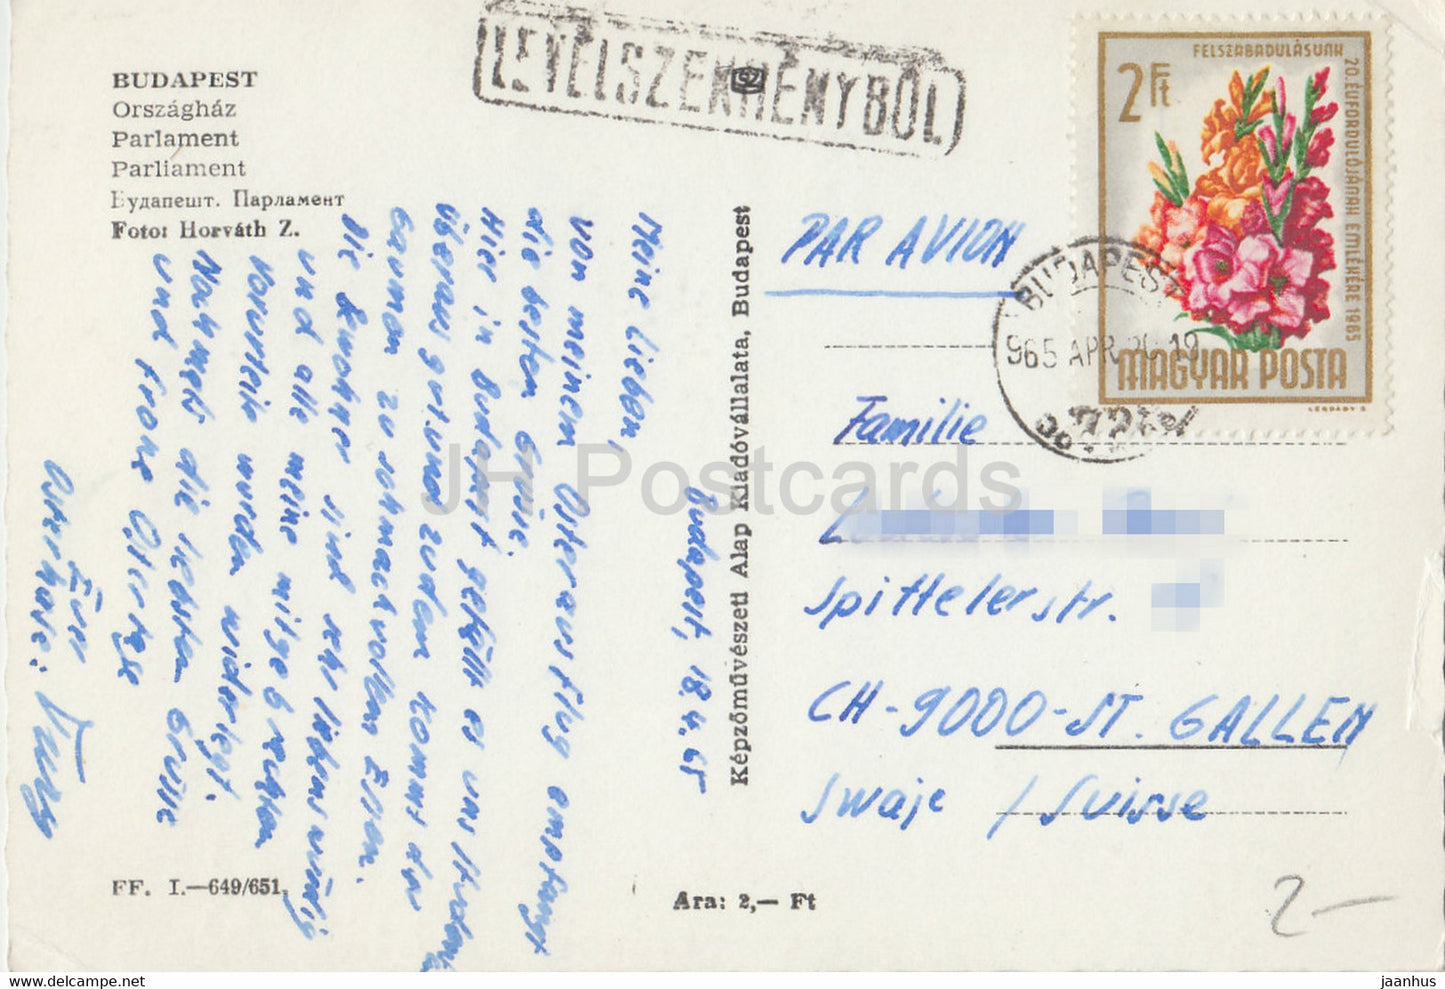 BUDAPEST
Országház
Parlament
Parliament
Будапешт. Парламент
Foto: Horváth Z.
LEVÉLSZEKRÉNYBŐL
2 Ft
FELSZABADULÁSUNK
20. ÉVFORDULÓJÁNAK EMLÉKÉRE 1965
MAGYAR POSTA
BUDAPEST
965 APR. 20. 19
Budapest, 18.4.65
Meine Lieben,
von meinem Osterausflug empfangt
die besten Grüsse.
Hier in Budapest gefällt es uns
überaus gut und zudem kommt der
Gauman zu schmachvollem Essen.
Die Bewohner sind sehr liebenswürdig
und alle meine mitgebrachten
Vorurteile wurden widerlegt.
Nochmals die liebsten Grüsse
und frohe Ostertage
Euer
Képzőművészeti Alap Kiadóvállalata, Budapest
PAR AVION
Familie
Spittelerstr.
CH-9000-ST. GALLEN
Svajc / Suisse
FF. I.—649/651.
Ára: 2,— Ft
2 —
JH Postcards
jaanhus